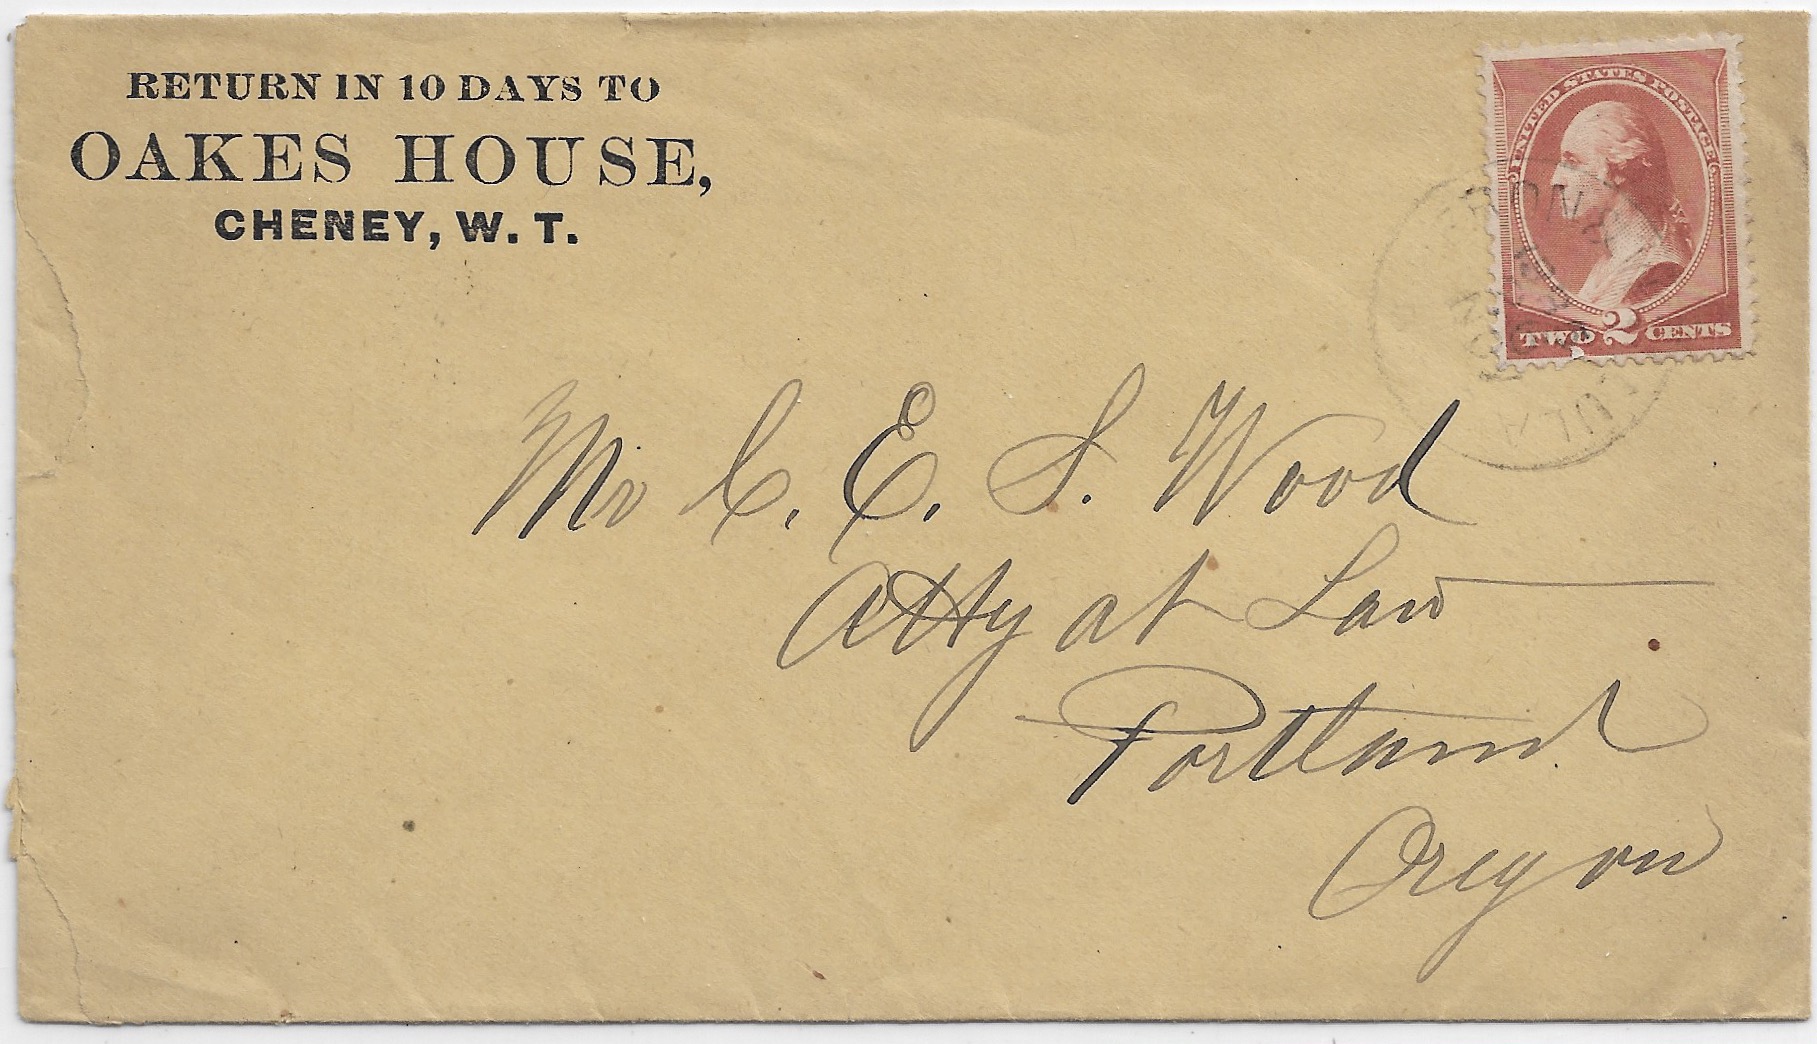 RETURN IN 10 DAYS TO
OAKES HOUSE,
CHENEY, W. T.
UNITED STATES POSTAGE
TWO 2 CENTS
Mr C. E. S. Wood
Atty at Law
Portland
Oregon